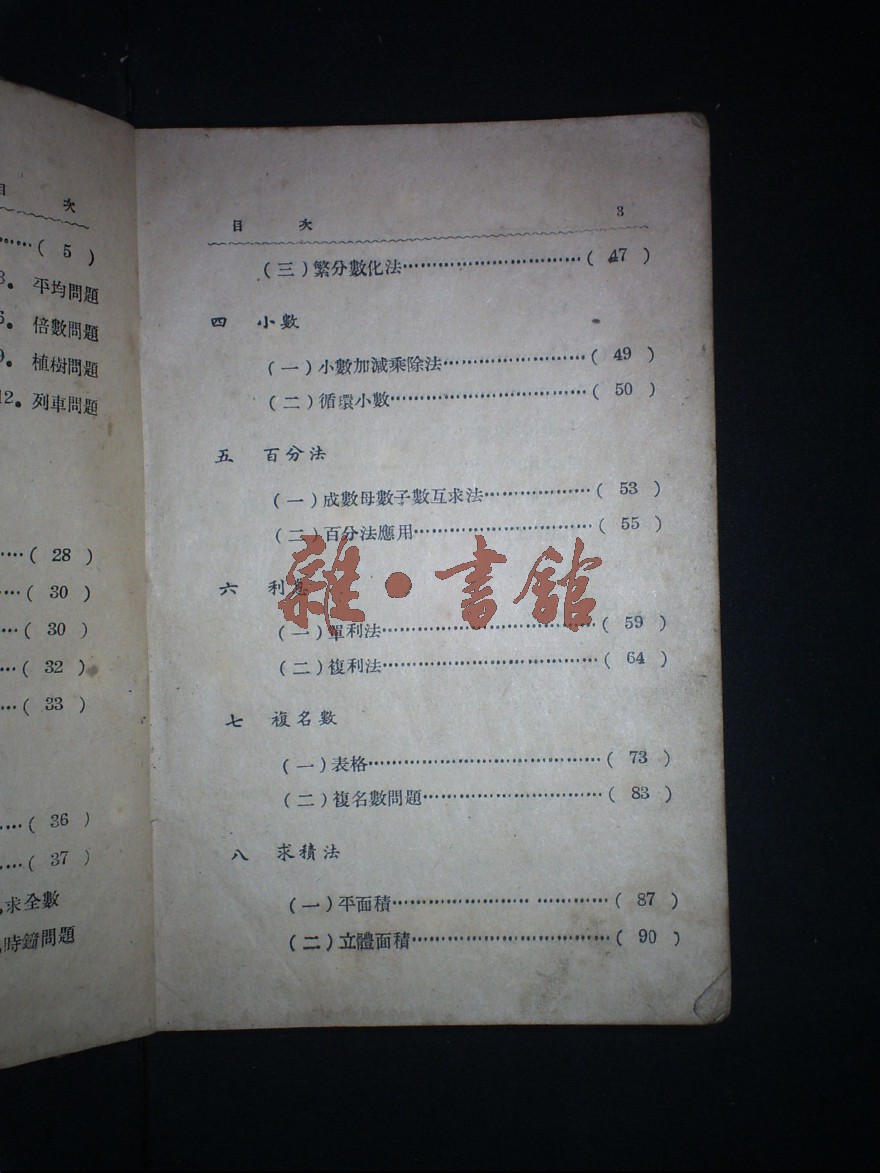 目 次
……( 5 )
3。 平均問題
6。 倍數問題
9。 植樹問題
12。 列車問題
……( 28 )
……( 30 )
……( 30 )
……( 32 )
……( 33 )
……( 36 )
……( 37 )
求全數
時鐘問題
目 次 3
(三)繁分數化法……( 47 )
四 小數
(一)小數加減乘除法……( 49 )
(二)循環小數……( 50 )
五 百分法
(一)成數母數子數互求法……( 53 )
(二)百分法應用……( 55 )
六 利息
(一)單利法……( 59 )
(二)複利法……( 64 )
七 複名數
(一)表格……( 73 )
(二)複名數問題……( 83 )
八 求積法
(一)平面積……( 87 )
(二)立體面積……( 90 )
雜·書館